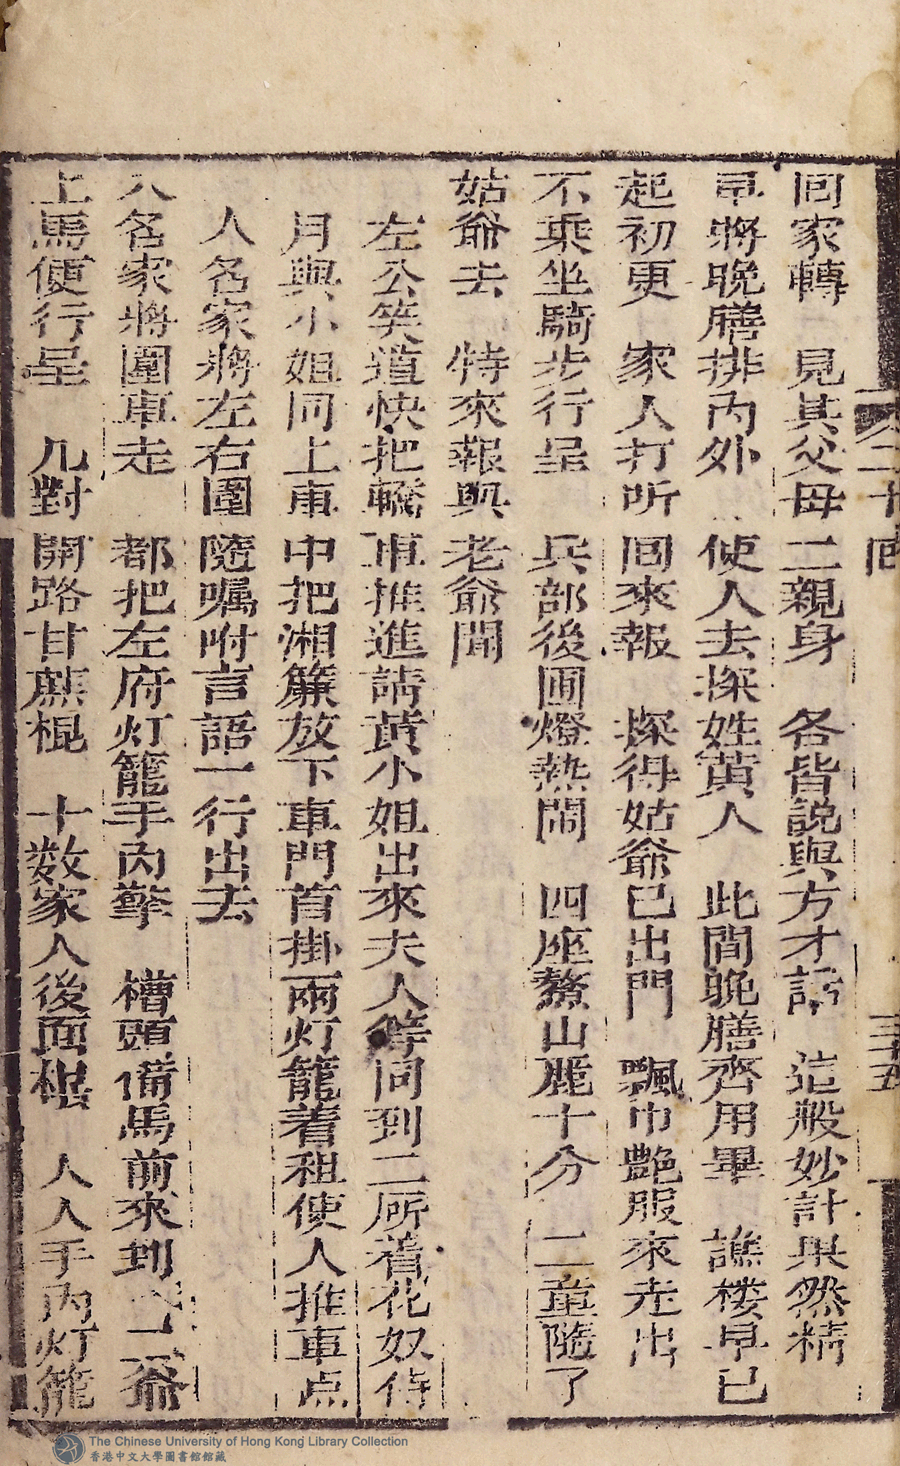 卷二 十回 三十五
回家轉 見其父母二親身 各皆說與方才話 這般妙計果然精
早將晚膳排內外 使人去探姓黃人 此間晚膳齊用畢 譙楼早已
起初更 家人打听回來報 探得姑爺已出門 飄巾艶服來走出
不乘坐騎步行呈 兵部後圃燈熱鬧 四座鰲山麗十分 二童隨了
姑爺去 特來報與老爺聞
左公笑道快把轎車推進請黃小姐出來夫人等同到二所着花奴侍
月與小姐同上車中把湘簾放下車門首掛兩灯籠着粗使人推車点
人名家將左右圍隨嘱咐言語一行出去
八名家將圍車走 都把左府灯籠手內擎 槽頭備馬前來到 二爺
上馬便行呈 几對開路甘蔗棍 十数家人後面棍 人人手內灯籠
The Chinese University of Hong Kong Library Collection
香港中文大學圖書館館藏